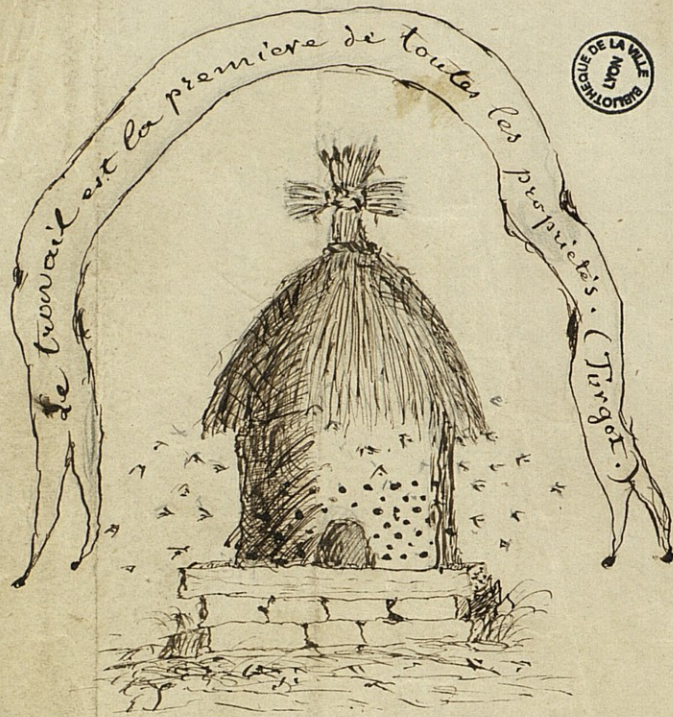 Le travail est la premiere de toutes les propriétés. (Turgot.)
BIBLIOTHEQUE DE LA VILLE
LYON